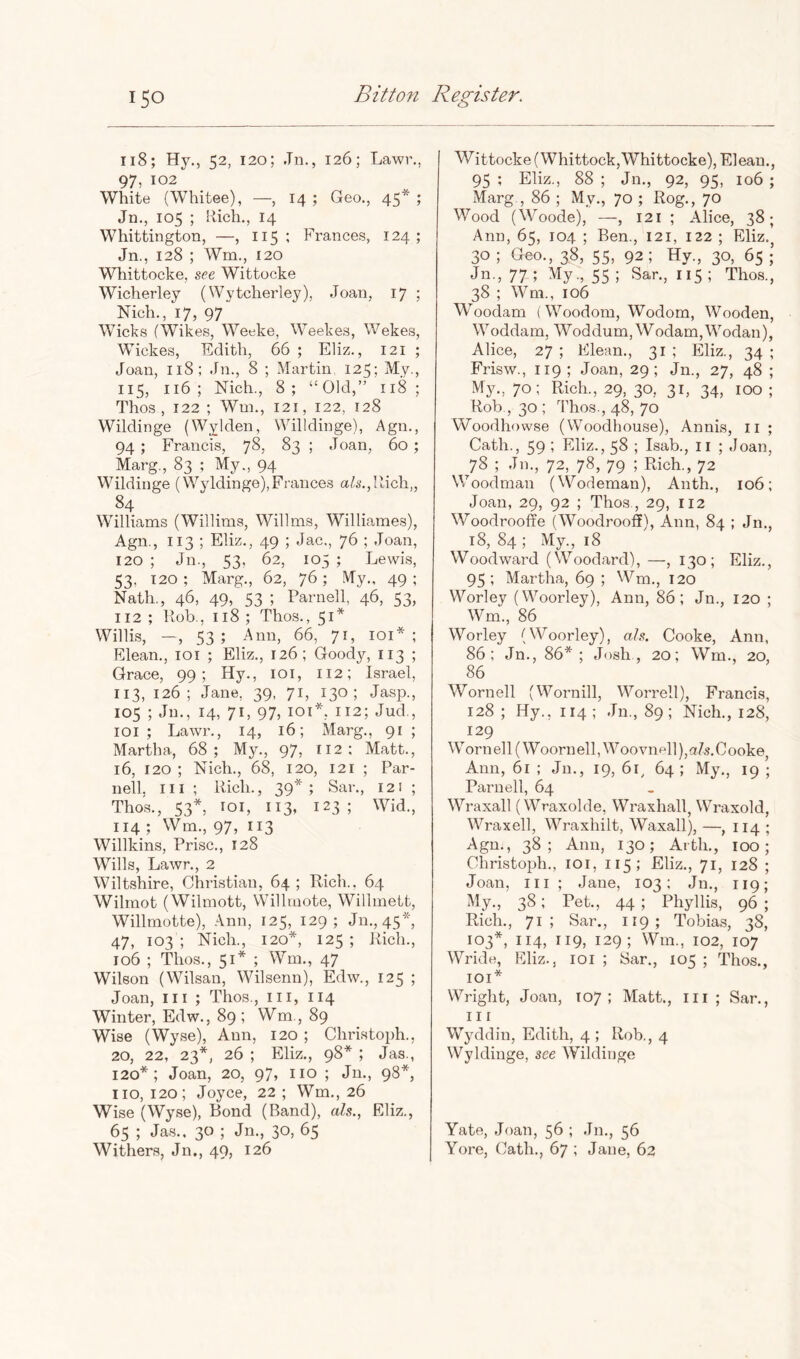 150 Bitton Register.
118; Hy., 52, 120; Jn., 126; Lawr.,
97, 102
White (Whitee), —, 14 ; Geo., 45* ;
Jn., 105 ; Rich., 14
Whittington, —, 115 ; Frances, 124 ;
Jn., 128 ; Wm., 120
Whittocke, see Wittocke
Wicherley (Wytcherley), Joan, 17 ;
Nich., 17, 97
Wicks (Wikes, Weeke, Weekes, Wekes,
Wickes, Edith, 66 ; Eliz., 121 ;
Joan, 118; Jn., 8 ; Martin 125; My.,
115, 116 ; Nich., 8 ; “Old,” 118 ;
Thos , 122 ; Wm., 121, 122, 128
Wildinge (Wylden, Willdinge), Agn.,
94 ; Francis, 78, 83 ; Joan, 60 ;
Marg., 83 ; My., 94
Wildinge (Wyldinge), Frances als., Rich,,
84
Williams (Willims, Willms, Williames),
Agn., 113 ; Eliz., 49 ; Jac., 76 ; Joan,
120 ; Jn., 53, 62, 105 ; Lewis,
53, 120 ; Marg., 62, 76 ; My., 49 ;
Nath., 46, 49, 53 ; Parnell, 46, 53,
112 ; Rob., 118 ; Thos., 51*
Willis, —, 53 ; Ann, 66, 71, 101* ;
Elean., 101 ; Eliz., 126 ; Goody, 113 ;
Grace, 99 ; Hy., 101, 112; Israel,
113, 126 ; Jane, 39, 71, 130 ; Jasp.,
105 ; Jn., 14, 71, 97, 101*, 112; Jud.,
101 ; Lawr., 14, 16; Marg., 91 ;
Martha, 68 ; My., 97, 112 ; Matt.,
16, 120 ; Nich., 68, 120, 121 ; Par-
nell, 111 ; Rich., 39* ; Sar., 121 ;
Thos., 53*, 101, 113, 123 ; Wid.,
114 ; Wm., 97, 113
Willkins, Prisc., 128
Wills, Lawr., 2
Wiltshire, Christian, 64 ; Rich., 64
Wilmot (Wilmott, Willmote, Willmett,
Willmotte), Ann, 125, 129 ; Jn., 45*,
47, 103 ; Nich., 120*, 125 ; Rich.,
106 ; Thos., 51* ; Wm., 47
Wilson (Wilsan, Wilsenn), Edw., 125 ;
Joan, 111 ; Thos., 111, 114
Winter, Edw., 89 ; Wm , 89
Wise (Wyse), Ann, 120 ; Christoph.,
20, 22, 23*, 26 ; Eliz., 98* ; Jas.,
120* ; Joan, 20, 97, 110 ; Jn., 98*,
110, 120 ; Joyce, 22 ; Wm., 26
Wise (Wyse), Bond (Band), als., Eliz.,
65 ; Jas., 30 ; Jn., 30, 65
Withers, Jn., 49, 126
Wittocke (Whittock, Whittocke), Elean.,
95 ; Eliz., 88 ; Jn., 92, 95, 106 ;
Marg , 86 ; My., 70 ; Rog., 70
Wood (Woode), —, 121 ; Alice, 38 ;
Ann, 65, 104 ; Ben., 121, 122 ; Eliz.,
30 ; Geo., 38, 55, 92 ; Hy., 30, 65 ;
Jn., 77 ; My., 55 ; Sar., 115 ; Thos.,
38 ; Wm., 106
Woodam (Woodom, Wodom, Wooden,
Woddam, Woddum, Wodam, Wodan),
Alice, 27 ; Elean., 31 ; Eliz., 34 ;
Frisw., 119 ; Joan, 29 ; Jn., 27, 48 ;
My., 70 ; Rich., 29, 30, 31, 34, 100 ;
Rob., 30 ; Thos., 48, 70
Woodhowse (Woodhouse), Annis, 11 ;
Cath., 59 ; Eliz., 58 ; Isab., 11 ; Joan,
78 ; Jn., 72, 78, 79 ; Rich., 72
Woodman (Wodeman), Anth., 106 ;
Joan, 29, 92 ; Thos., 29, 112
Woodrooffe (Woodrooff), Ann, 84 ; Jn.,
18, 84 ; My., 18
Woodward (Woodard), —, 130 ; Eliz.,
95 ; Martha, 69 ; Wm., 120
Worley (Woorley), Ann, 86 ; Jn., 120 ;
Wm., 86
Worley (Woorley), als. Cooke, Ann,
86 ; Jn., 86* ; Josh., 20; Wm., 20,
86
Wornell (Wornill, Worrell), Francis,
128 ; Hy., 114 ; Jn., 89 ; Nich., 128,
129
Wornell (Woornell, Woovnell), als. Cooke,
Ann, 61 ; Jn., 19, 61, 64 ; My., 19 ;
Parnell, 64
Wraxall (Wraxolde, Wraxhall, Wraxold,
Wraxell, Wraxhilt, Waxall), —, 114 ;
Agn., 38 ; Ann, 130 ; Arth., 100 ;
Christoph., 101, 115 ; Eliz., 71, 128 ;
Joan, 111 ; Jane, 103 ; Jn., 119;
My., 38 ; Pet., 44 ; Phyllis, 96 ;
Rich., 71 ; Sar., 119 ; Tobias, 38,
103*, 114, 119, 129 ; Wm., 102, 107
Wride, Eliz., 101 ; Sar., 105 ; Thos.,
101*
Wright, Joan, 107 ; Matt., 111 ; Sar.,
111
Wyddin, Edith, 4 ; Rob., 4
Wyldinge, see Wildinge
Yate, Joan, 56 ; Jn., 56
Yore, Cath., 67 ; Jane, 62